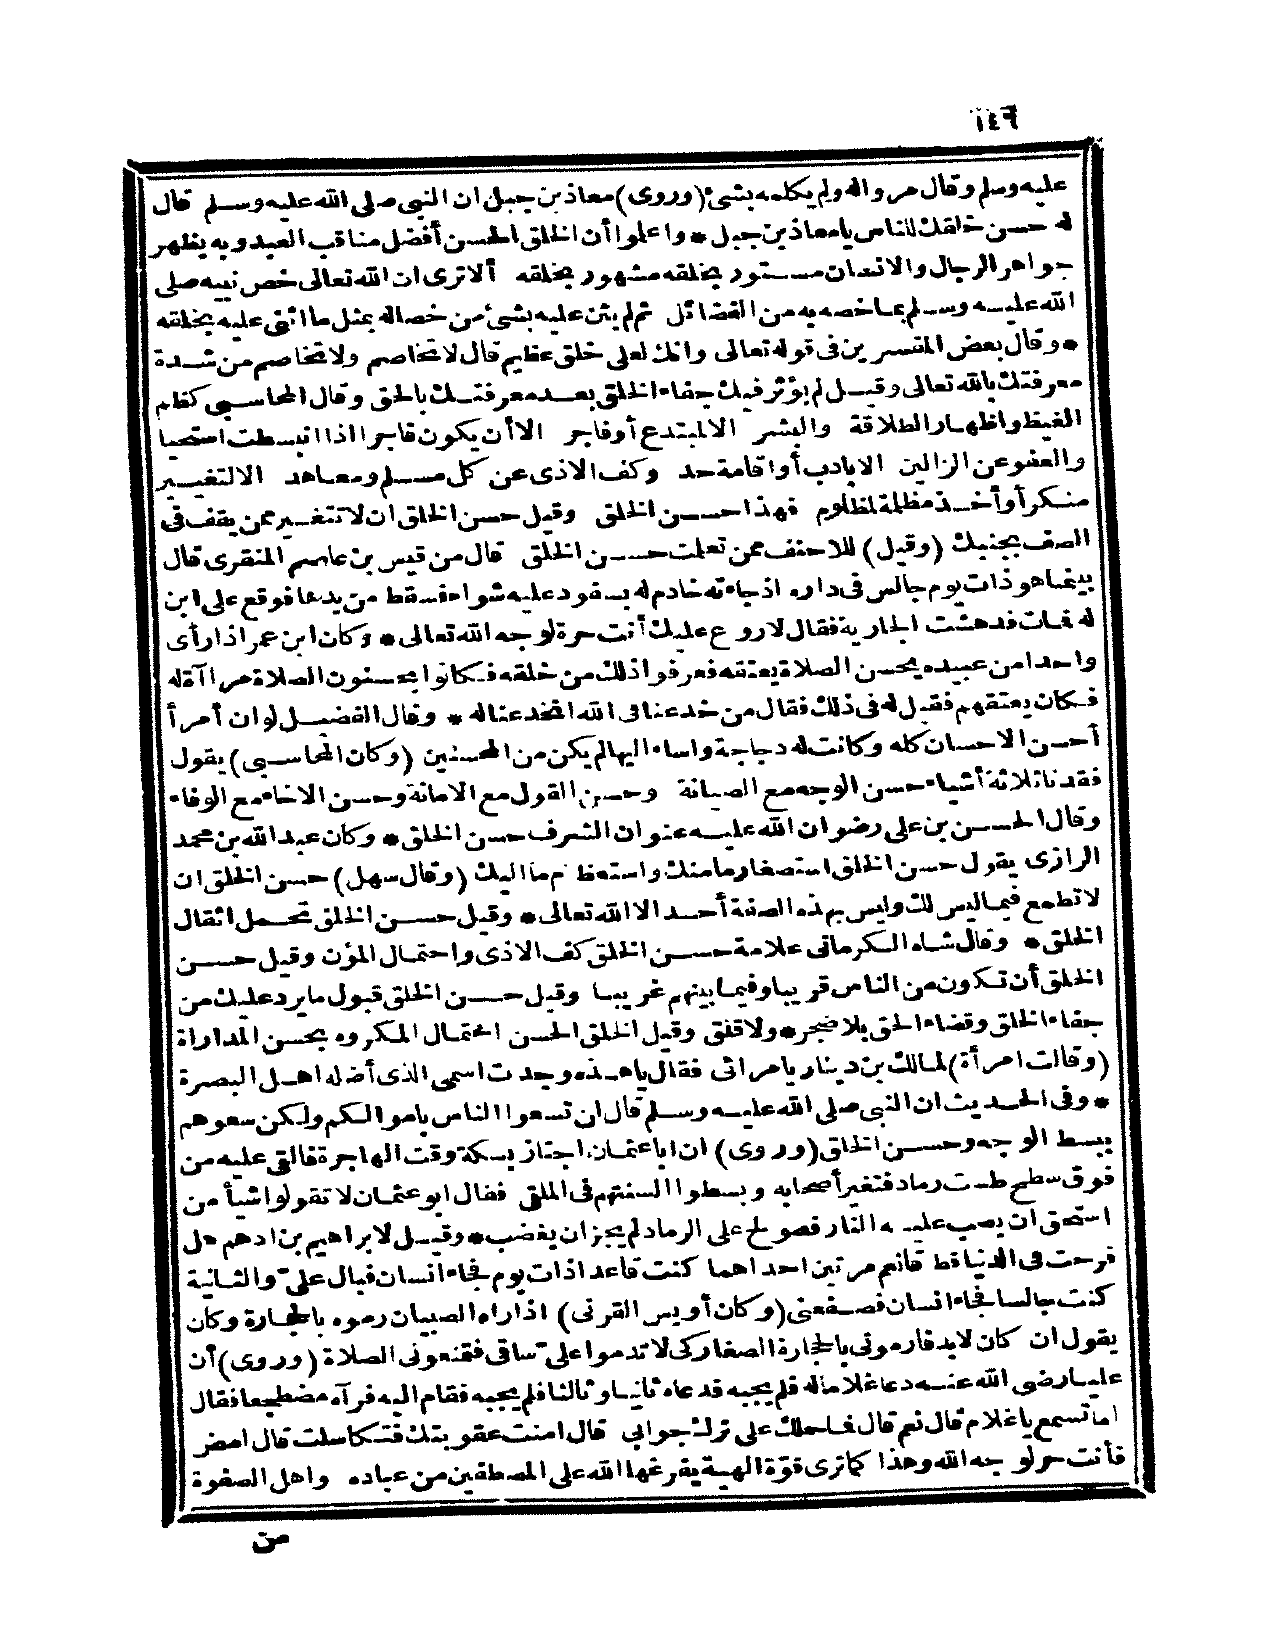 ١٤٦
عليه وسلم وقال مر واله ولم يكلمه بشئ (وروى) معاذ بن جبل ان النبي صلى الله عليه وسلم قال
له حسن خلقك للناس يا معاذ بن جبل * واعلموا أن الخلق الحسن أفضل مناقب العبد وبه يظهر
جواهر الرجال والانسان مستور بخلقه مشهور بخلقه ألا ترى ان الله تعالى خص نبيه صلى
الله عليه وسلم بما خصه به من الفضائل ثم لم يثن عليه بشئ من خصاله بمثل ما اثنى عليه بخلقه
* وقال بعض المفسرين فى قوله تعالى وانك لعلى خلق عظيم قال لا تخاصم ولا تخاصم من شدة
معرفتك بالله تعالى وقيل لم يؤثر فيك جفاء الخلق بعد معرفتك بالحق وقال المحاسبي كظم
الغيظ واظهار الطلاقة والبشر الا لمبتدع أو فاجر الا أن يكون فاجرا اذا انبسطت استحيا
والعفو عن الزالين الا بادب أو اقامة حد وكف الاذى عن كل مسلم ومعاهد الا لتغيير
منكر أو أخذ مظلمة لمظلوم فهذا حسن الخلق وقيل حسن الخلق ان لا تتغير ممن يقف فى
الصف بجنبك (وقيل) للاحنف ممن تعلمت حسن الخلق قال من قيس بن عاصم المنقرى قال
بينما هو ذات يوم جالس فى داره اذ جاءته خادم له بسفود عليه شواء فسقط من يدها فوقع على ابن
له فمات فدهشت الجارية فقال لا روع عليك أنت حرة لوجه الله تعالى * وكان ابن عمر اذا رأى
واحدا من عبيده يحسن الصلاة يعتقه فعرفوا ذلك من خلقه فكانوا يحسنون الصلاة مراآة له
فكان يعتقهم فقيل له فى ذلك فقال من خدعنا فى الله انخدعنا له * وقال الفضيل لو ان أمرأ
أحسن الاحسان كله وكانت له دجاجة واساء اليها لم يكن من المحسنين (وكان المحاسبى) يقول
فقدنا ثلاثة أشياء حسن الوجه مع الصيانة وحسن القول مع الامانة وحسن الاخاء مع الوفاء
وقال الحسن بن على رضوان الله عليه عنوان الشرف حسن الخلق * وكان عبد الله بن محمد
الرازى يقول حسن الخلق استصغار ما منك واستعظام ما اليك (وقال سهل) حسن الخلق ان
لا تطمع فيما ليس لك وليس بهذه الصفة أحد الا الله تعالى * وقيل حسن الخلق تحمل اثقال
الخلق * وقال شاه الكرمانى علامة حسن الخلق كف الاذى واحتمال المؤن وقيل حسن
الخلق أن تكون من الناس قريبا وفيما بينهم غريبا وقيل حسن الخلق قبول ما يرد عليك من
جفاء الخلق وقضاء الحق بلا ضجر * ولا قلق وقيل الخلق الحسن احتمال المكروه بحسن المداراة
(وقالت امرأة) لمالك بن دينار يا مرائى فقال يا هذه وجدت اسمى الذى أضله اهل البصرة
* وفى الحديث ان النبي صلى الله عليه وسلم قال ان تسعوا الناس باموالكم ولكن سعوهم
ببسط الوجه وحسن الخلق (وروى) ان ابا عثمان اجتاز بسكة وقت الهاجرة فالقى عليه من
فوق سطح طست رماد فتغير أصحابه وبسطوا السنتهم فى الملقى فقال ابو عثمان لا تقولوا شيأ من
استحق ان يصب عليه النار فصولح على الرماد لم يجز ان يغضب * وقيل لابراهيم بن ادهم هل
فرحت فى الدنيا قط قال نعم مرتين احداهما كنت قاعدا ذات يوم فجاء انسان فبال علىّ والثانية
كنت جالسا فجاء انسان فصفعنى (وكان أويس القرنى) اذا راه الصبيان رموه بالحجارة وكان
يقول ان كان لا بد فارمونى بالحجارة الصغار كى لا تدموا علىّ ساقى فتمنعونى الصلاة (وروى) أن
عليا رضى الله عنه دعا غلاما له فلم يجبه فدعاه ثانيا وثالثا فلم يجبه فقام اليه فرآه مضطجعا فقال
اما تسمع يا غلام قال نعم قال فما حملك على ترك جوابى قال امنت عقوبتك فتكاسلت قال امض
فأنت حر لوجه الله وهذا كما ترى قوّة الهية يفرغها الله على المصطفين من عباده واهل الصفوة
من